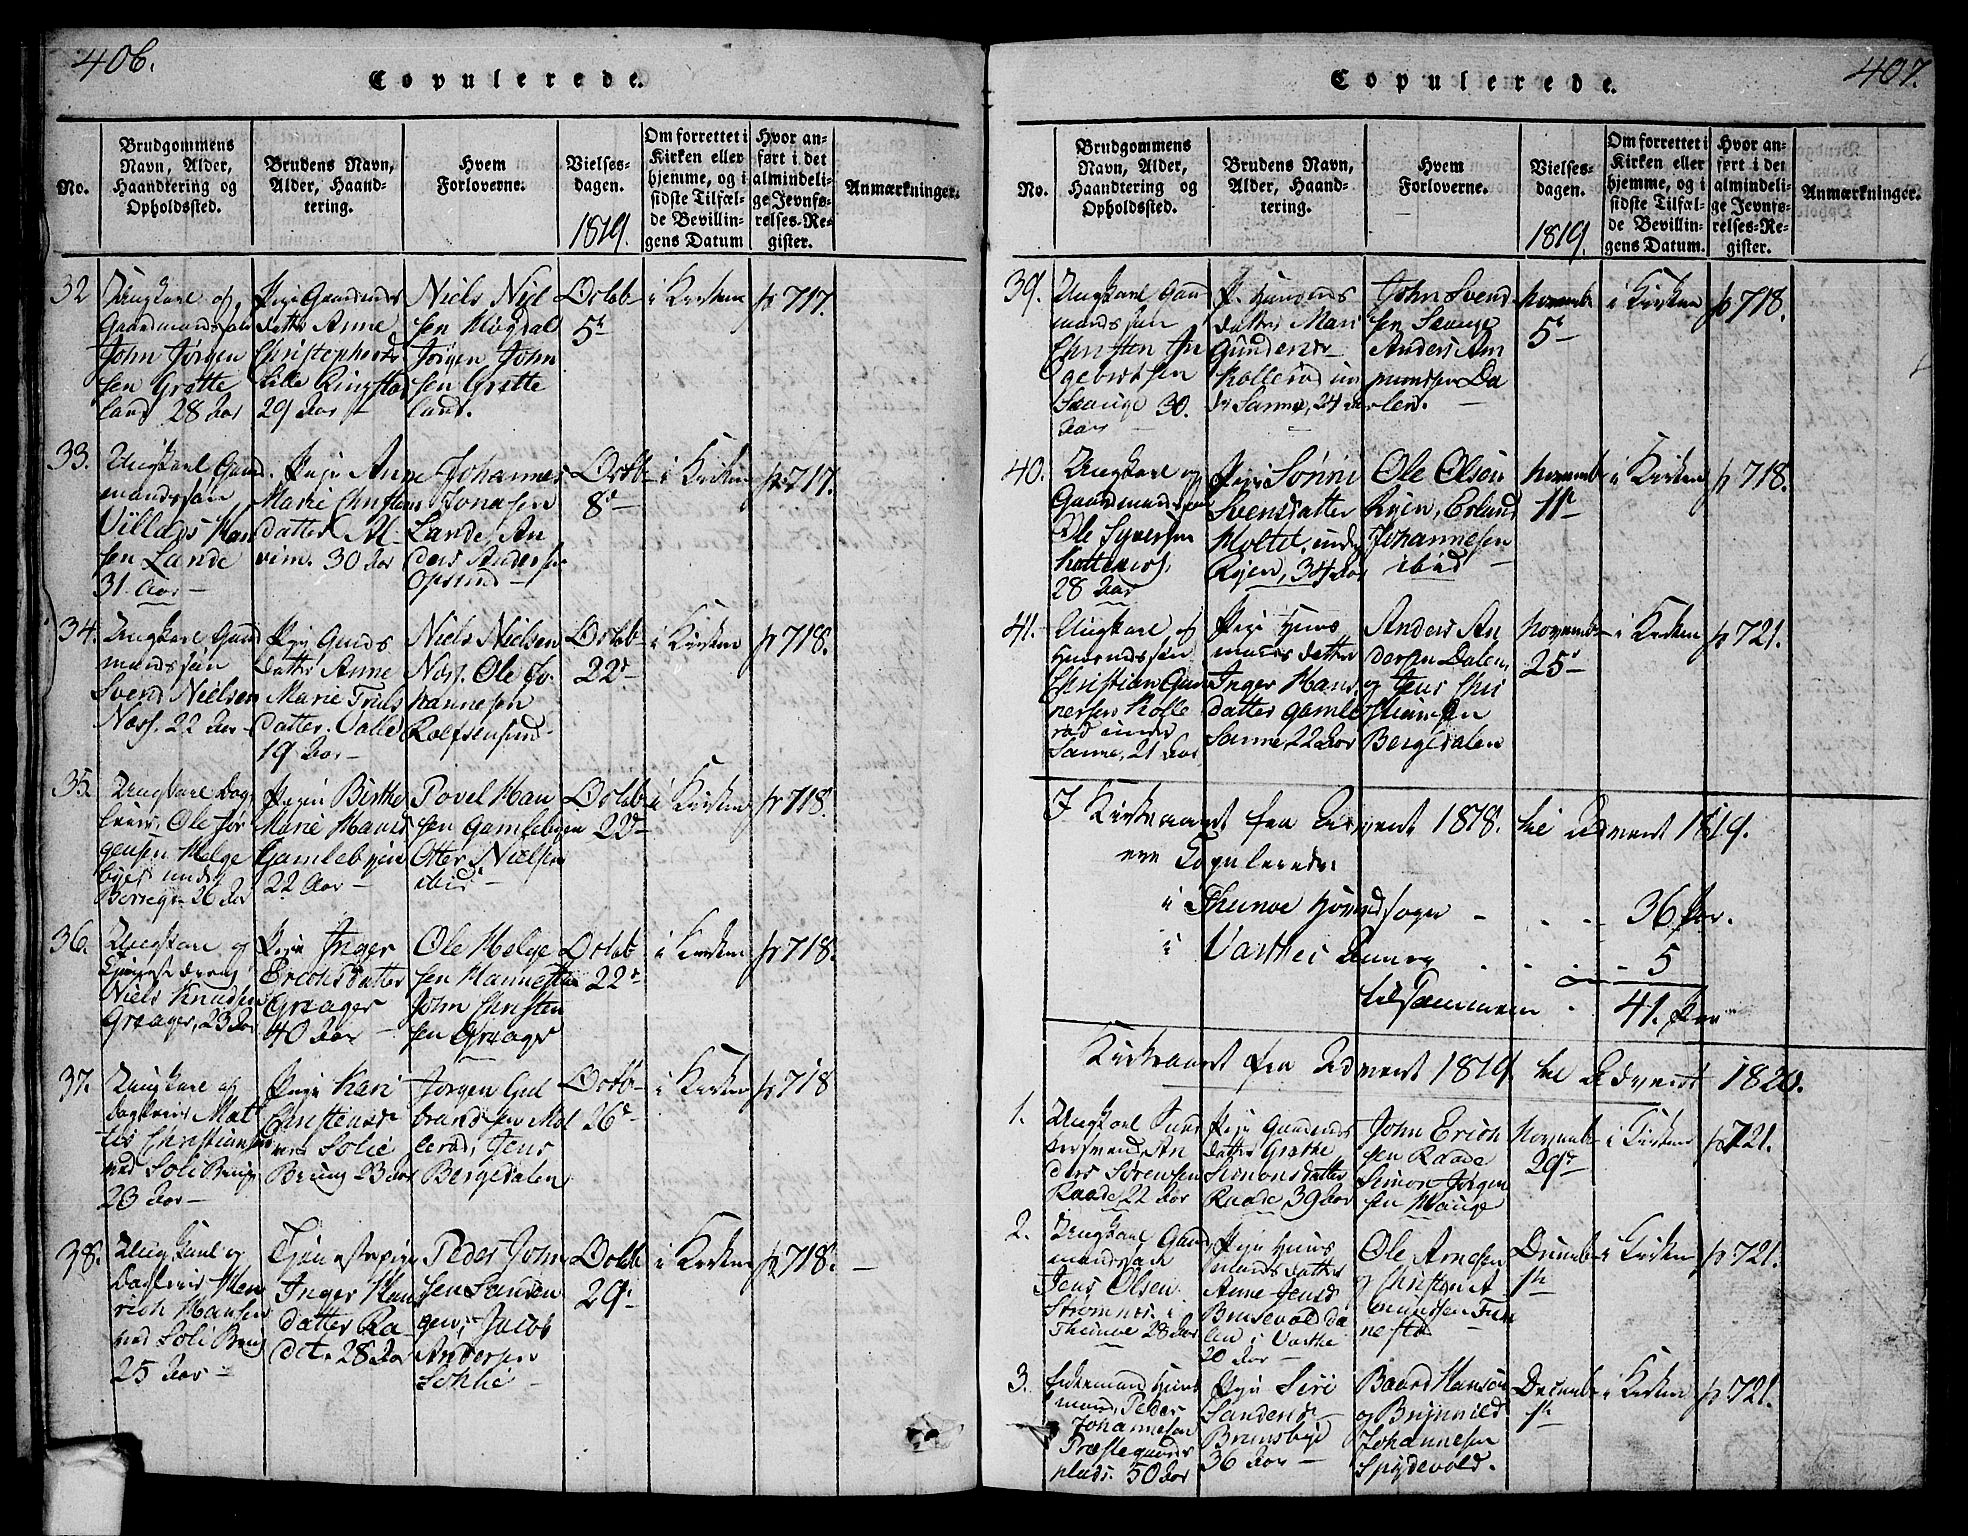 406.
Copulerede.
No.
Brudgommens
Navn, Alder,
Haandtering og
Opholdssted.
Brudens Navn,
Alder, Haand-
tering.
Hvem
Forloverne.
Vielses-
dagen.
1819.
Om forrettet i
Kirken eller
hjemme, og i
sidste Tilfæl-
de Bevillin-
gens Datum
Hvor an-
ført i det
almindeli-
ge Jevnfø-
relses-Re-
gister.
Anmærkninger.
32
Ungkarl og
Gaardmandssøn
John Jørgen
sen Grotte
land 28 Aar
Pige Gaardmds
datter Anne
Christophersdr
Lille Ringstad
29 Aar
Niels Niel
sen Høgdal
Jørgen John
sen Grotte
land.
Octob
5te
i Kirken
p 717.
33.
Ungkarl Gaard
mandssøn
Villads Han
sen Lande
31 Aar
Pige Anne
Marie Christens
datter
30 Aar
Johannes
Jonasen
Lande, An
ders Anders
Opsund
Octb
8de
i Kirken
p 717.
34.
Ungkarl Gaard
mandssøn
Svend Nielsen
Næss. 22 Aar
Pige Gaards
datter Anne
Marie Truls
datter Valle
19 Aar
Niels Nielsen
Næss. Ole Jo
hannesen
Rolfsensund
Octob
22de
i Kirken
p 718.
35.
Ungkarl Dag
leier, Ole Jør
gensen Helge
byes under
Borregn 26 Aar
Pigen Birthe
Marie Hansd
Gamlebyen
22 Aar
Povel Han
sen Gamlebyen
Otter Nielsen
ibid
Octob
22de
i Kirken
p 718.
36.
Ungkarl og
Tjenestedreng
Niels Knudsen
Graager, 23 Aar
Pige Inger
Erichsdatter
Graager
40 Aar
Ole Helge
sen Hannestad
John Christen
sen Graager
Octob
22de
i Kirken
p 718.
37.
Ungkarl og
dagleier Mat
tis Christiansen
ved Soli Brug
23 Aar
Pige Kari
Christensdr
ved Solie
Brug 23 Aar
Jørgen Gul
brandsen Møl
lerød, Jens
Bergedalen
Octb
26de
i Kirken
p 718
38.
Ungkarl og
Dagleier Hen
rich Hansen
ved Soli Brug
25 Aar
Tjenestepige
Inger Hans
datter Ra
det. 28 Aar
Peder John
sen Sanden
gen, Jacob
Andersen
Sohlie
Octob
29de
i Kirken
p 718.
407.
Copulerede.
No.
Brudgommens
Navn, Alder,
Haandtering og
Opholdssted.
Brudens Navn,
Alder, Haand-
tering.
Hvem
Forloverne.
Vielses-
dagen.
1819.
Om forrettet i
Kirken eller
hjemme, og i
sidste Tilfæl-
de Bevillin-
gens Datum.
Hvor an-
ført i det
almindeli-
ge Jevnfø-
relses-Re-
gister.
Anmærkninger.
39.
Ungkarl Gaard
mandssøn
Christen In
gebretsen
Sauge 30.
Aar
P. Huusmds
datter Mari
Gundersdr
Kollerød un
der Sanne, 24 Aar
John Svend
sen Sauge
Anders Am
mundsen Da
len.
Novemb
5te
i Kirken
p 718.
40.
Ungkarl og
Gaardmandssøn
Ole Syversen
28 Aar
Pige Sønni
Svensdatter
Holtet, under
Ryen, 34 Aar
Ole Olsen
Ryen, Erland
Johannesen
ibid
Novemb
11te
i Kirken
p 718.
41.
Ungkarl og
Huusmdssøn
Christian Gun
nersen Kolle
rød under
Sanne, 21 Aar
Pige Huus
mands datter
Inger Hans
datter Gamle
Sanne 22 Aar
Anders An
dersen Dalen
og Jens Chri
stiansen
Bergedalen
Novemb
25de
i Kirken
p 721.
I Kirkeaaret fra Advent 1818. til Advent 1819.
ere Copulerede:
i Thunøe Hovedsogn - - - 36 Par.
i Varthei Annex 5
tilsammen 41. Par
Kirkeaaret fra Advent 1819 til Advent 1820.
1.
Ungkarl
An
ders Sørensen
Raade 22 Aar
Pige Gaardmds
datter Grethe
Simonsdatter
Raade 39 Aar
John Erich
sen Raade
Simon Jørgen
sen Hauge
Novemb
29de
i Kirken
p 721.
2.
Ungkarl Gaard
mandssøn
Jens Olsen
Strømnes i
Thunøe 28 Aar
Pige Huus
mands datter
Anne Jensd
Brusevold Da
len i Varthe
20 Aar
Ole Arnesen
og Christen A
mundsen Tun
nestad
Decemb
1te
i Kirken
p 721.
3.
Enkemand Huus
mand, Peder
Johannesen
Præstegaards
plads. 50 Aar
Pige Siri
Sandersdr
Brunsbyd
36 Aar
Baard Hansen
og Brynnild
Johannesen
Spydevold.
Decemb
1te
i Kirken
p 721.